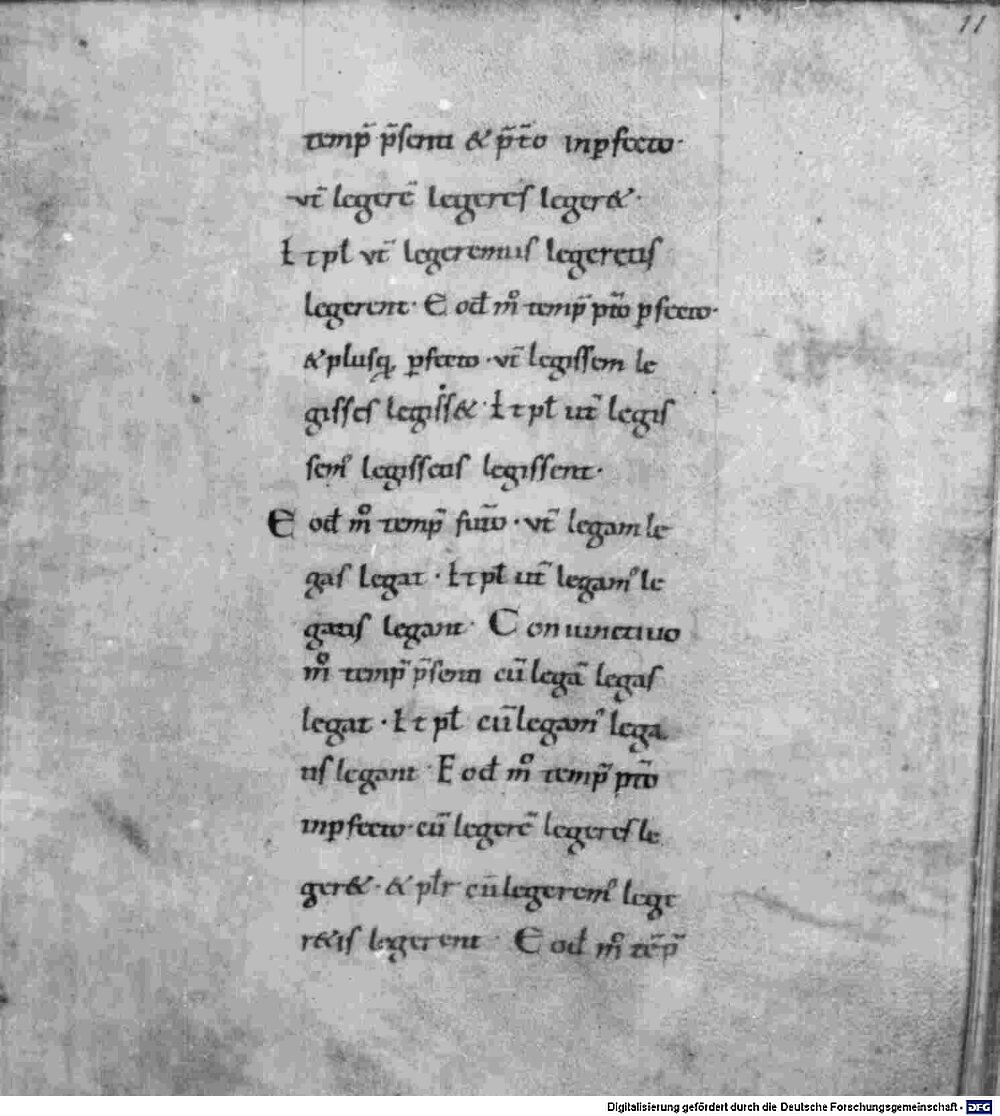 11
temp̄ p̄senti & p̄t̄o inꝑfecto·
vt̄ legerē legeres leger&·
& pł vt̄ legeremus legeretis
legerent· E od̄ mͦ temp̄ pt̄o ꝑfecto·
& plusq, ꝑfecto · vt̄ legissem le
gisses legiss& · & pł ut̄ legis
semꝰ legissetis legissent·
E od̄ mͦ temp̄ futō · vt̄ legam le
gas legat · & pł ut̄ legamꝰ le
gatis legant · Coniunctiuo
mͦ temp̄ p̄senti cū legā legas
legat · & pł cū legamꝰ lega
tis legant · E od̄ mͦ temp̄ pt̄o
inꝑfecto· cū legerē legeres le
ger& · & płr cū legeremꝰ lege
r&is legerent · E od̄ mͦ tēp̄
Digitalisierung gefördert durch die Deutsche Forschungsgemeinschaft - DFG